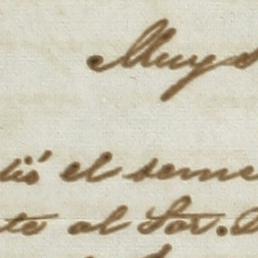 Muy s
tió el seme
te al Sor. D